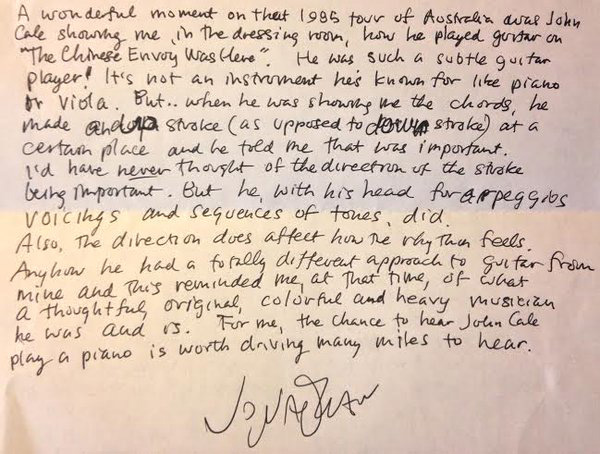 A wonderful moment on that 1985 tour of Australia was John
Cale showing me, in the dressing room, how he played guitar on
"The Chinese Envoy Was Here". He was such a subtle guitar
player! It's not an instrument he's known for like piano
or viola. But.. when he was showing me the chords, he
made an up stroke (as opposed to down stroke) at a
certain place and he told me that was important.
I'd have never thought of the direction of the stroke
being important. But he, with his head for arpeggios
voicings and sequences of tones, did.
Also, the direction does affect how the rhythm feels.
Anyhow he had a totally different approach to guitar from
mine and this reminded me, at that time, of what
a thoughtful, original, colorful and heavy musician
he was and is. For me, the chance to hear John Cale
play a piano is worth driving many miles to hear.
Jonathan